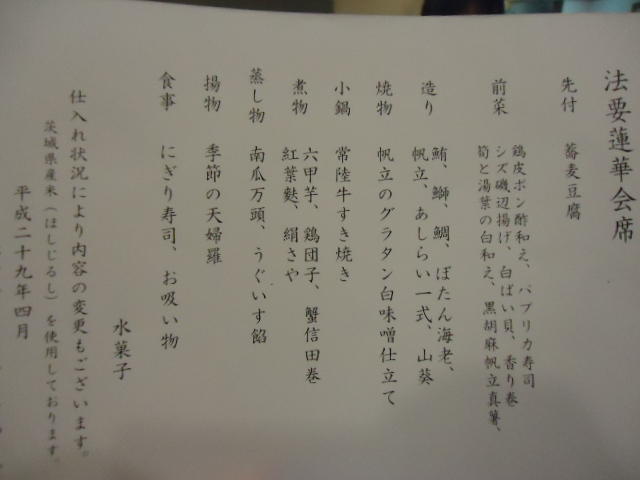 法要蓮華会席
先付 蕎麦豆腐
前菜 鶏皮ポン酢和え、パプリカ寿司
シズ磯辺揚げ、白ばい貝、香り巻
筍と湯葉の白和え、黒胡麻帆立真薯、
造り 鮪、鰤、鯛、ぼたん海老、
帆立、あしらい一式、山葵
焼物 帆立のグラタン白味噌仕立て
小鍋 常陸牛すき焼き
煮物 六甲芋、鶏団子、蟹信田巻
紅葉麩、絹さや
蒸し物 南瓜万頭、うぐいす餡
揚物 季節の天婦羅
食事 にぎり寿司、お吸い物
水菓子
仕入れ状況により内容の変更もございます。
茨城県産米(ほしじるし)を使用しております。
平成二十九年四月